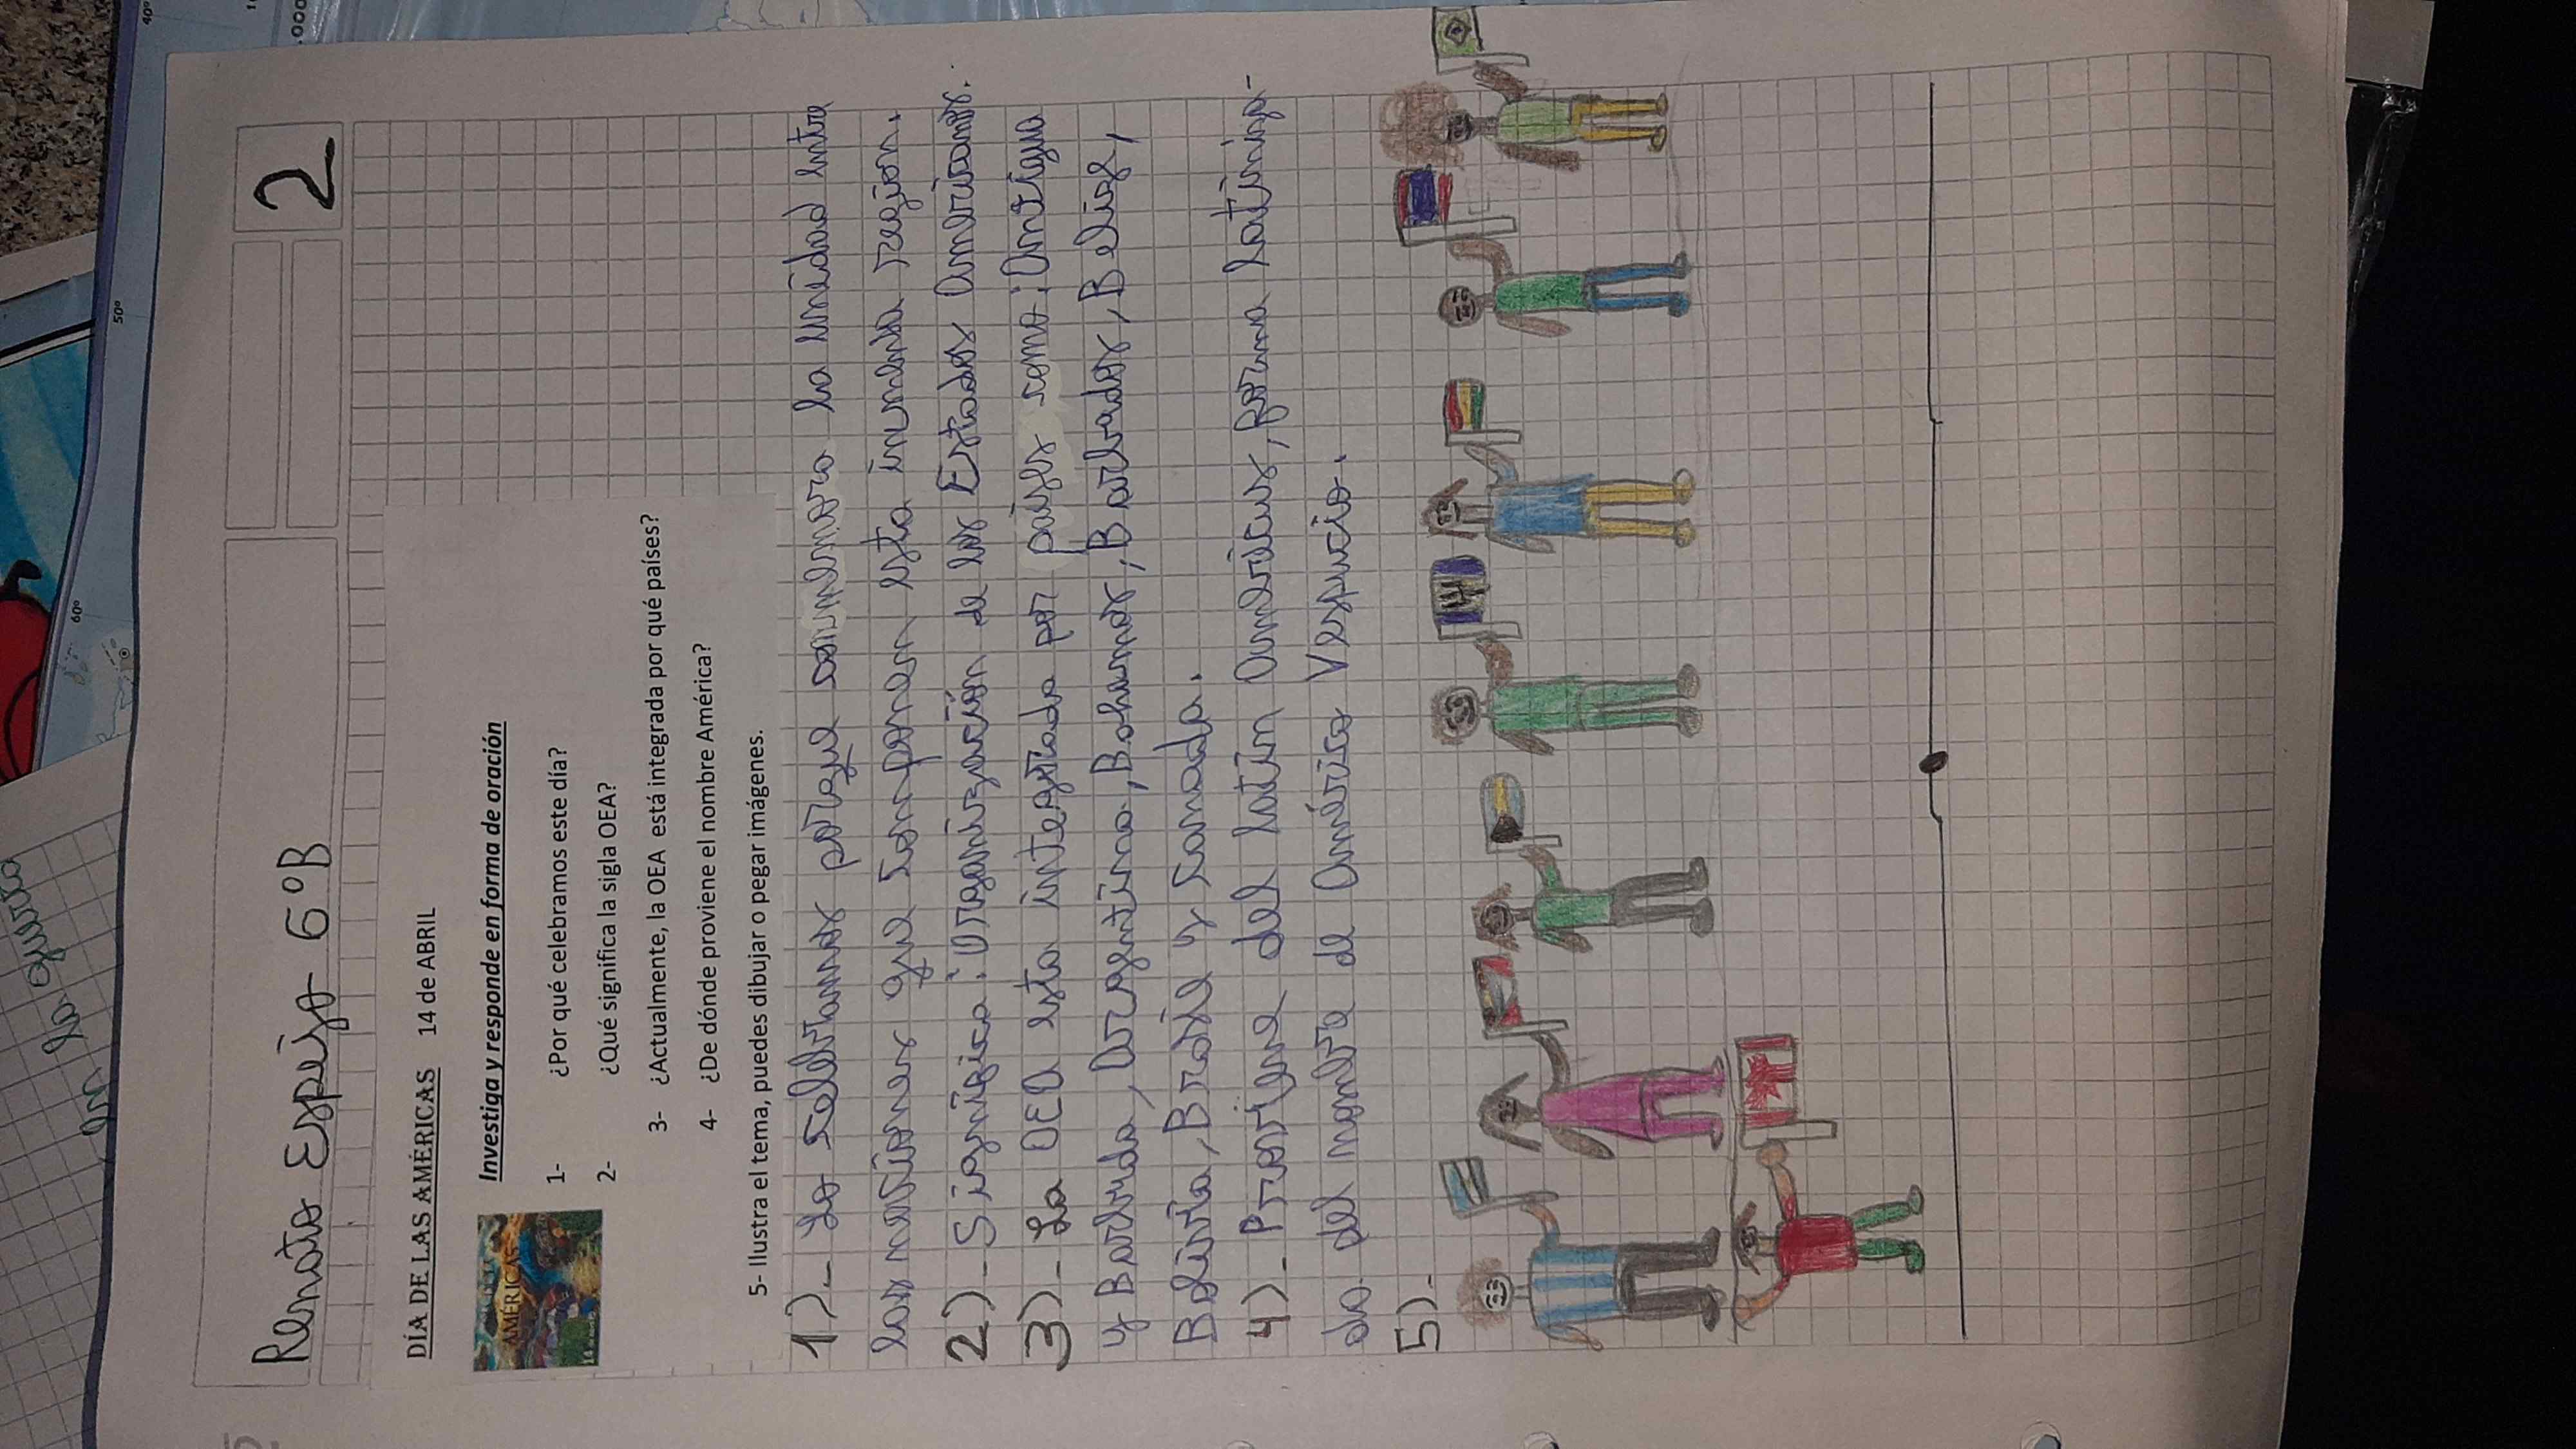 Renato Espejo 6°B
2
DÍA DE LAS AMÉRICAS 14 de ABRIL
Investiga y responde en forma de oración
AMÉRICAS
1- ¿Por qué celebramos este día?
2- ¿Qué significa la sigla OEA?
3- ¿Actualmente, la OEA está integrada por qué países?
4- ¿De dónde proviene el nombre América?
5- Ilustra el tema, puedes dibujar o pegar imágenes.
1)- Lo celebramos porque conmemora la unidad entre
las naciones que componen esta inmensa region.
2)- Significa: Organización de los Estados Americanos.
3)- La OEA esta integrada por países como: Antigua
y Barbuda, Argentina, Bahamas, Barbados, Belice,
Bolivia, Brasil y Canada.
4)- Proviene del latín Americus, forma latiniza-
da del nombre de Américo Vespucio.
5)-
la guerra
40°
50°
60°